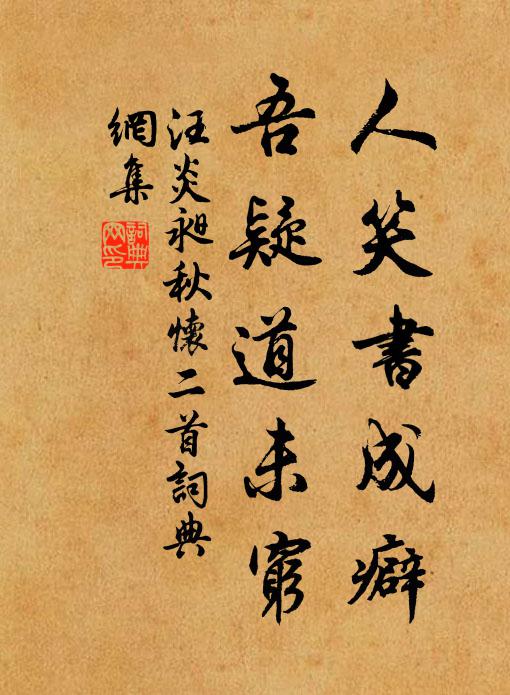 人笑書成癖
吾疑道未窮
汪炎昶秋懷二首詞典
網集
詞典
网印